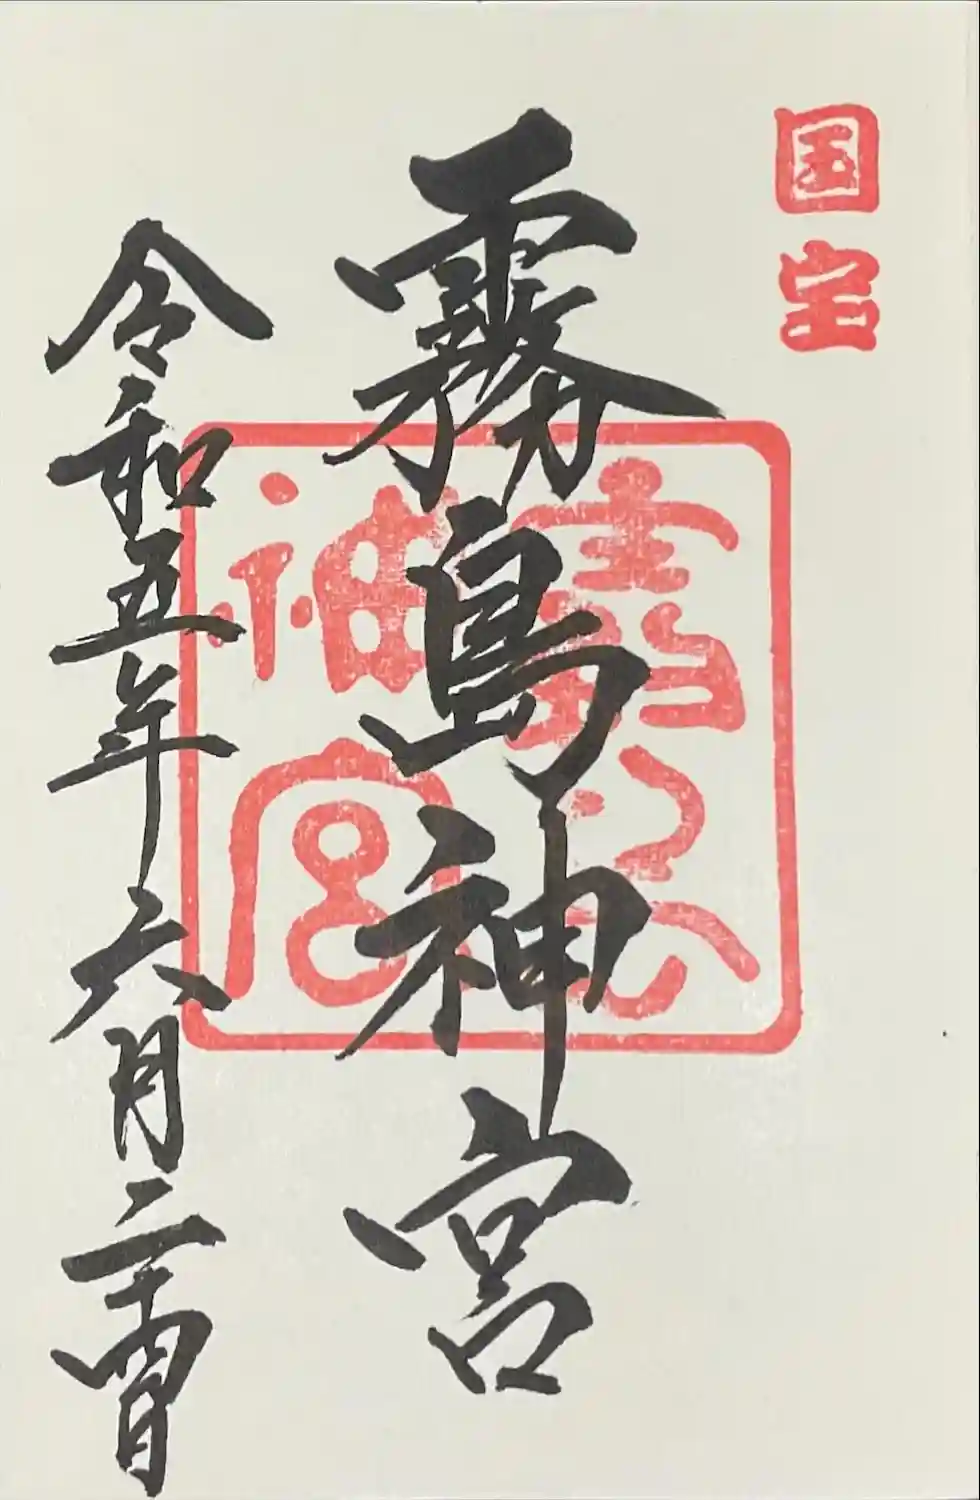 国宝
霧島神宮
令和五年六月二十四日
霧島
神宮